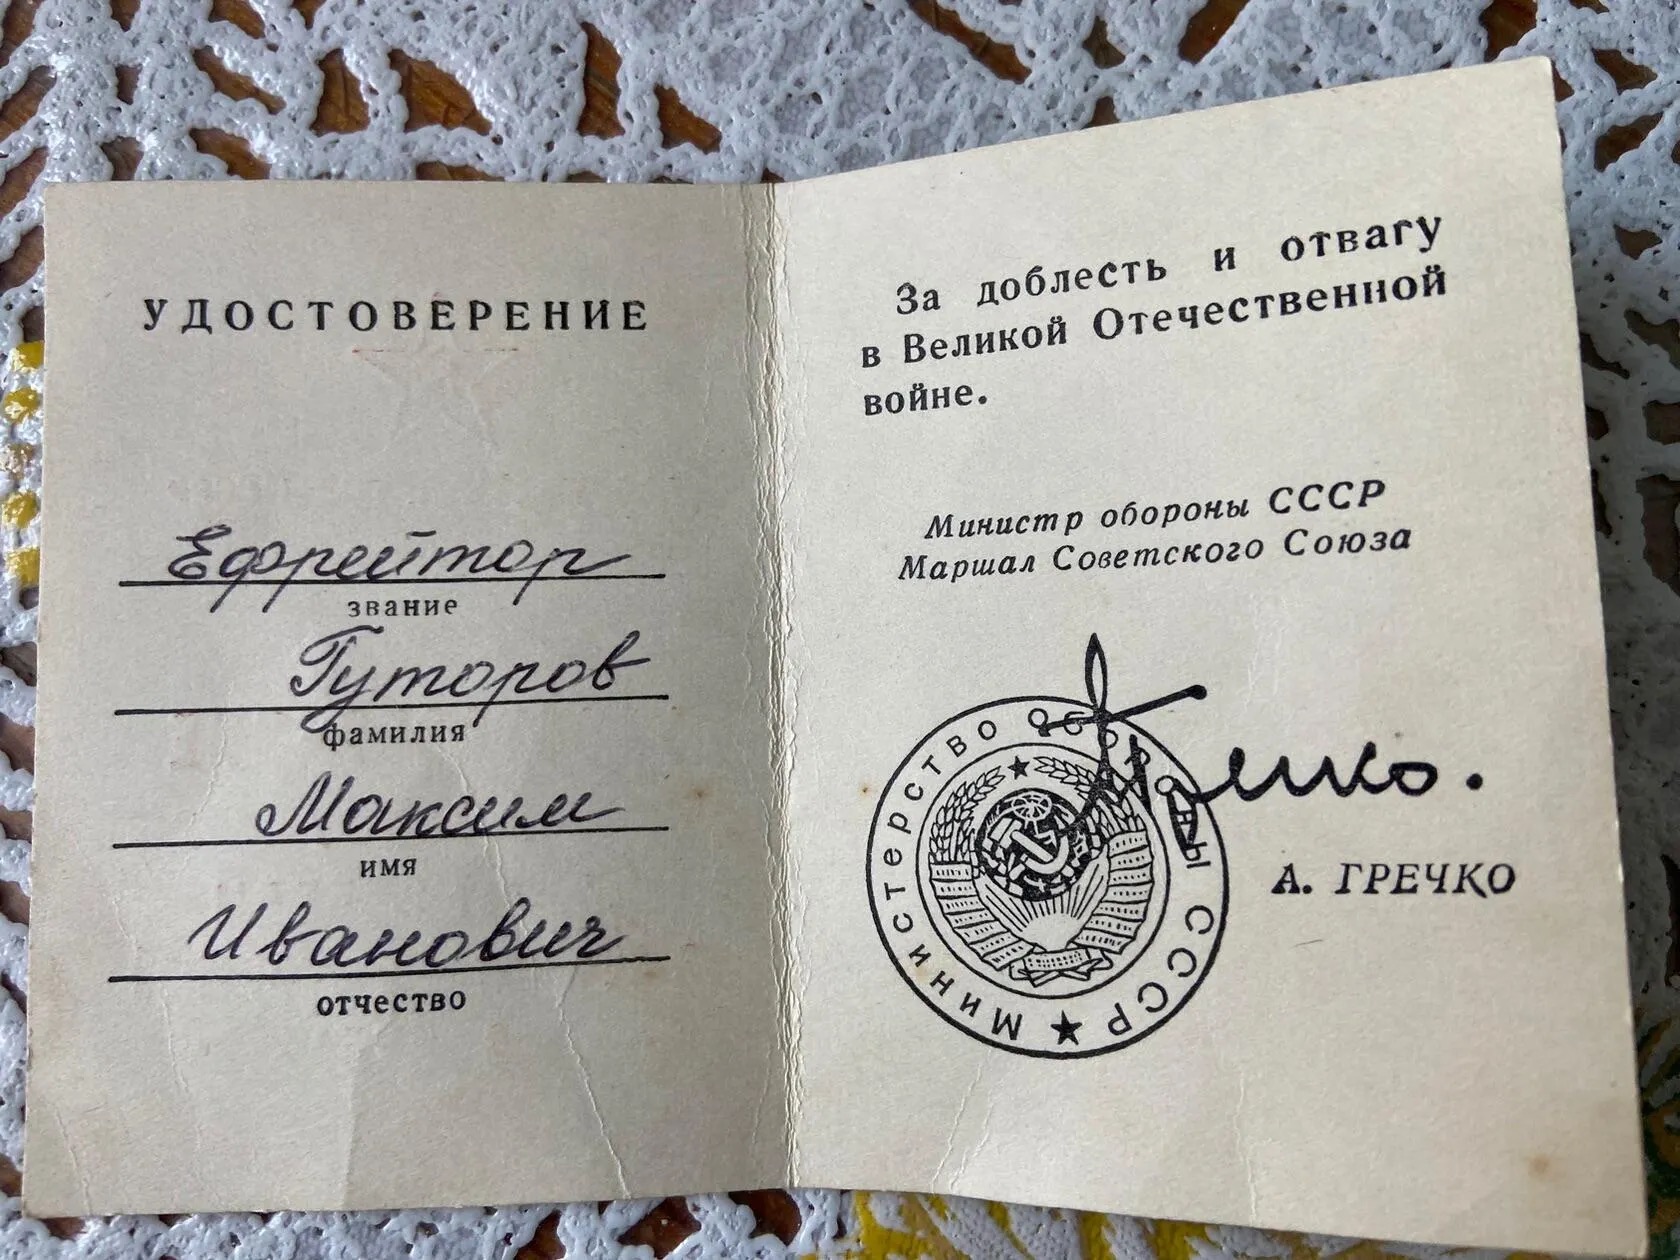 УДОСТОВЕРЕНИЕ
Ефрейтор
звание
Гуторов
фамилия
Максим
имя
Иванович
отчество
За доблесть и отвагу
в Великой Отечественной
войне.
Министр обороны СССР
Маршал Советского Союза
Гречко.
Министерство обороны СССР
А. ГРЕЧКО